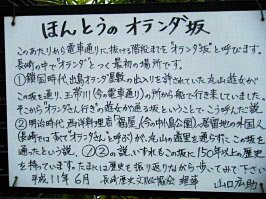 ほんとうのオランダ坂
このあたりから電車通りに抜ける階段までを"オランダ坂"と呼びます。
長崎の中で"オランダ"とつく最初の場所です。
①鎖国時代、出島オランダ屋敷の出入りを許されていた丸山遊女が
この坂を通り、玉帯川(今の電車通り)の所から船で行き来していました。
そこから"オランダさん行き"の遊女が通る坂ということで、こう呼んだ説。
②明治時代、西洋料理店"福屋"(今の中島公園)へ居留地の外国人
(長崎では全て"オランダさん"と呼ぶ)が、丸山の遊里を通らずにこの坂を
通ったという説。①②の説、いずれもこの坂に150年以上の歴史
を持っています。たまには歴史を振り返りながら歩いてみて下さい
平成11年6月 長崎歴史文化協会 理事 山口広助